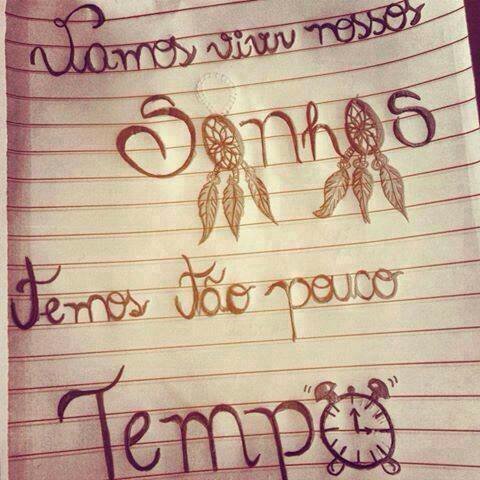 Vamos viver nossos
Sonhos
Temos tão pouco
Tempo